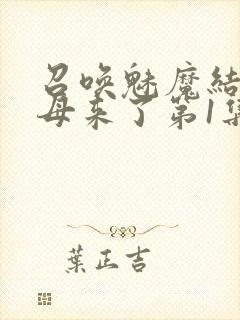 召唤魅魔结
母来了第1集
葉正吉